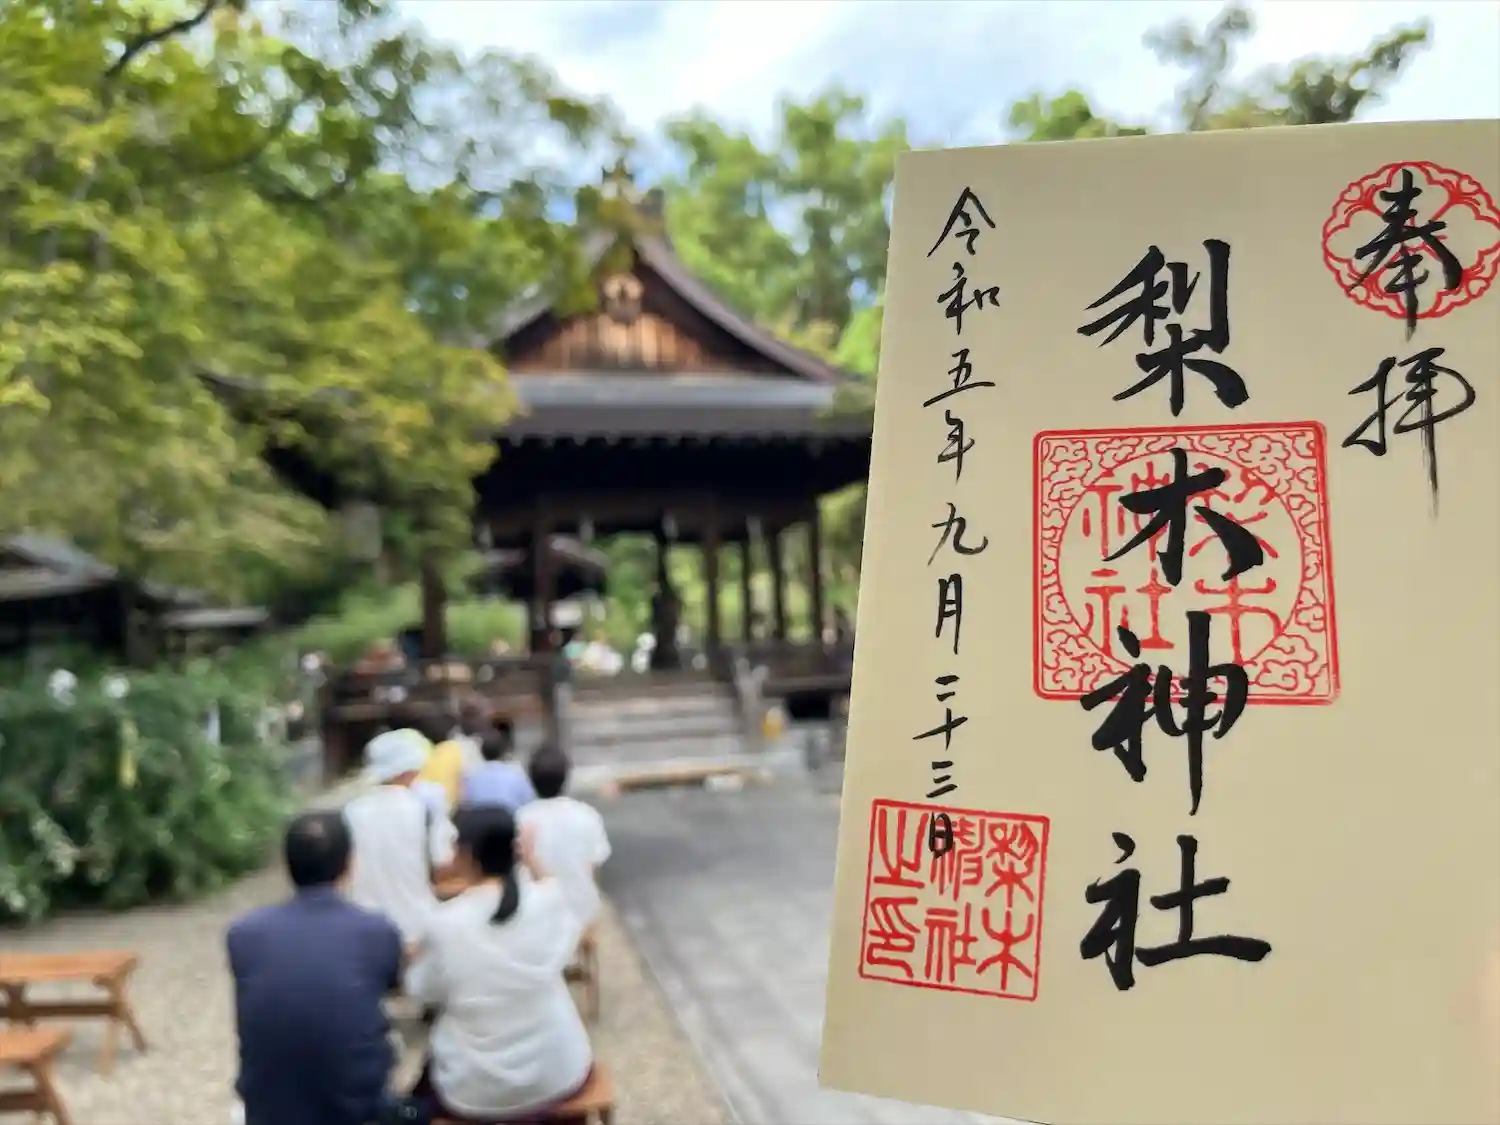 奉拝
梨木神社
梨木神社
令和五年九月二十三日
梨木神社之印